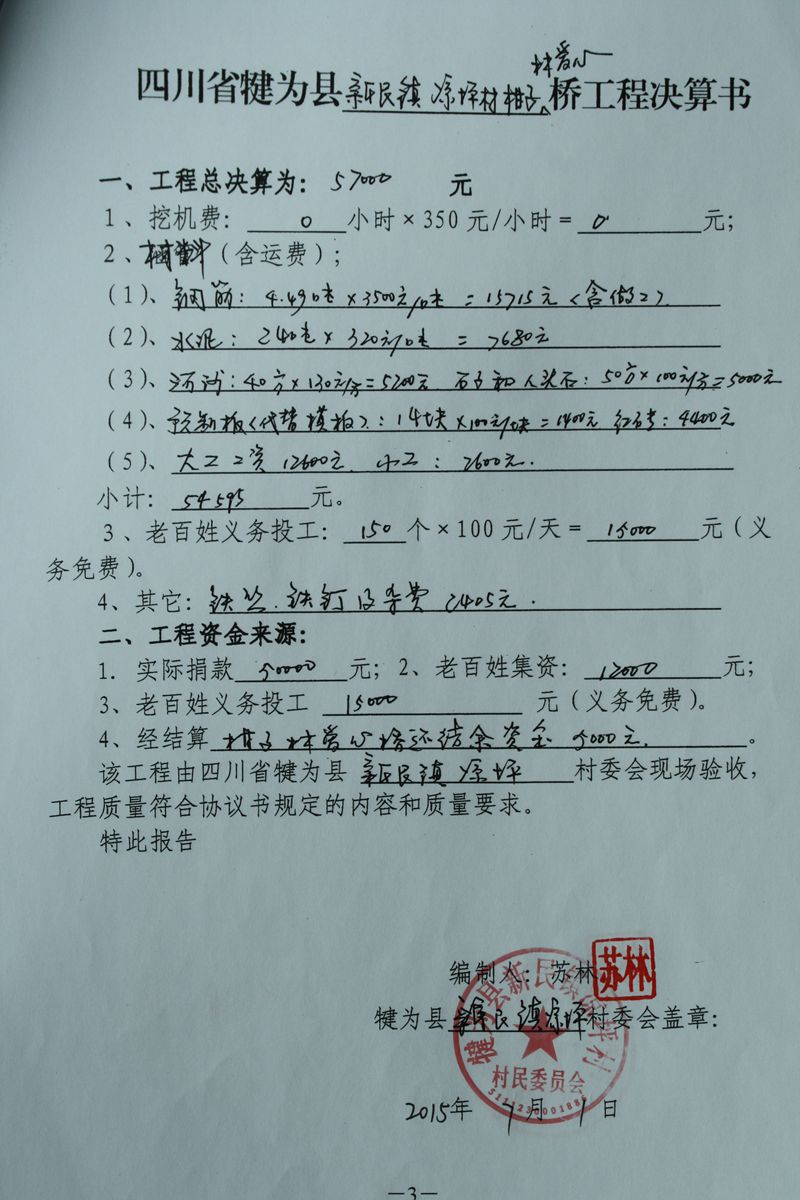 林爱心
四川省犍为县新民镇凉坪村柑子桥工程决算书
一、工程总决算为：57000 元
1、挖机费：0小时×350元/小时=0元；
2、材料（含运费）；
（1）、钢筋：4.49吨×3500元/吨=15715元（含做工）
（2）、水泥：24吨×320元/吨=7680元
（3）、河沙：40方×130元/方=5200元 石子和人头石：50方×100元/方=5000元
（4）、预制板（代替模板）：14块×100元/块=1400元 红石专：4400元
（5）、大工工资12600元 小工：2600元.
小计：54595元。
3、老百姓义务投工：150个×100元/天=15000元（义
务免费）。
4、其它：铁丝.铁钉及杂费2405元.
二、工程资金来源：
1. 实际捐款50000元；2、老百姓集资：12000元；
3、老百姓义务投工 15000 元（义务免费）。
4、经结算柑子林爱心桥还结余资金5000元.。
该工程由四川省犍为县新民镇凉坪村委会现场验收，
工程质量符合协议书规定的内容和质量要求。
特此报告
编制人：苏林 苏林
犍为县新民镇凉坪村委会盖章：
犍为县新民镇凉坪村
村民委员会
2015年 7月 1日
—3—